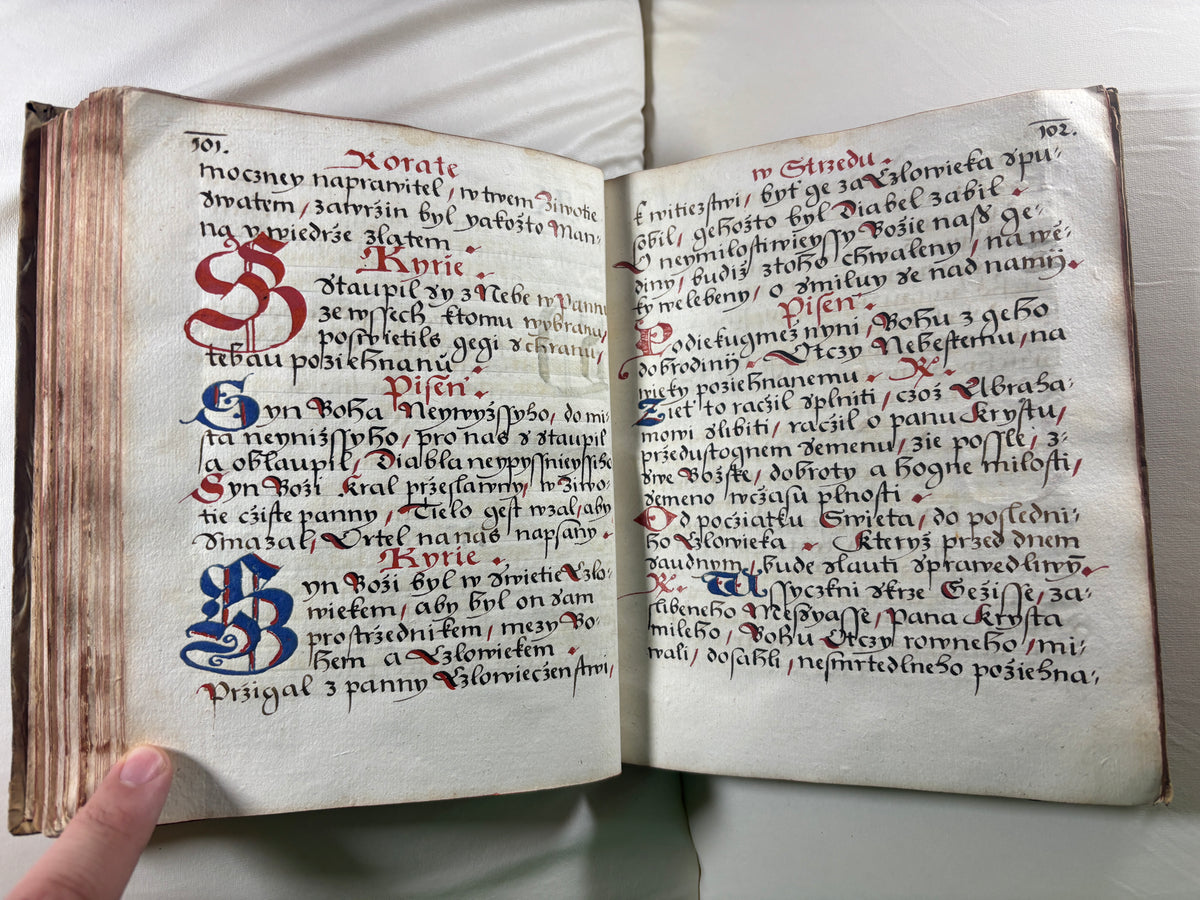 101.
Rorate
moczney naprawitel / w twem Ziwotie
swatem / zawržin byl yakožto Man-
na v wiedrže zlatem .
Kyrie .
Staupil sy z Nebe w Pannu
ze wssech k tomu wybranau /
poswietils gegi schranu /
tebau požiehnanu .
Pisen .
Syn Boha Neywyžssyho / do mi-
sta neynižssyho / pro nas s staupil
a obłaupil / Diabla neypyssnieyssiho
Syn Boži Kral přzeslawny / w žiwo-
tie cžiste panny / Tielo gest wzal / aby
smazal / Ortel na nas napsany .
Kyrie .
Syn Boži byl w swietie Cžlo-
wiekem / aby byl on sam
prostržednikem / mezy Bo-
hem a Cžlowiekem .
Pržigal z panny Cžlowieczenstwi /
102.
w Strzedu .
k witiezstwi / byt ge za Cžlowieka spu-
sobil / gehožto byl Diabel zabil .
O neymilostiwieyssy Bože nass ge-
diny / budiž z toho chwaleny / na wě-
ky welebeny / o smiluy se nad namij .
Pisen .
Podiekugmež nyni / Bohu z geho
dobrodinij . Otczy Nebeskemu / na
wieky požiehnanemu . R.
Ziet' to račžil splniti / cžož Abraha-
mowi slibiti / račžil o panu Krystu /
przedustognem semenu / žie possle / z-
swe Božske / dobroty a hogne milosti /
semeno w cžasu plnosti .
Od počžiatku Swieta / do posledni-
ho Cžlowieka . Kteryž przed dnem
saudnym / bude slauti sprawedliwy .
R. Wssyczkni skrze Gežisse / za-
slibeneho Messyasse / pana Krysta
mileho / Bohu Otczy rowneho / mi-
wali / dosahli / nesmrtedlneho požiehna-